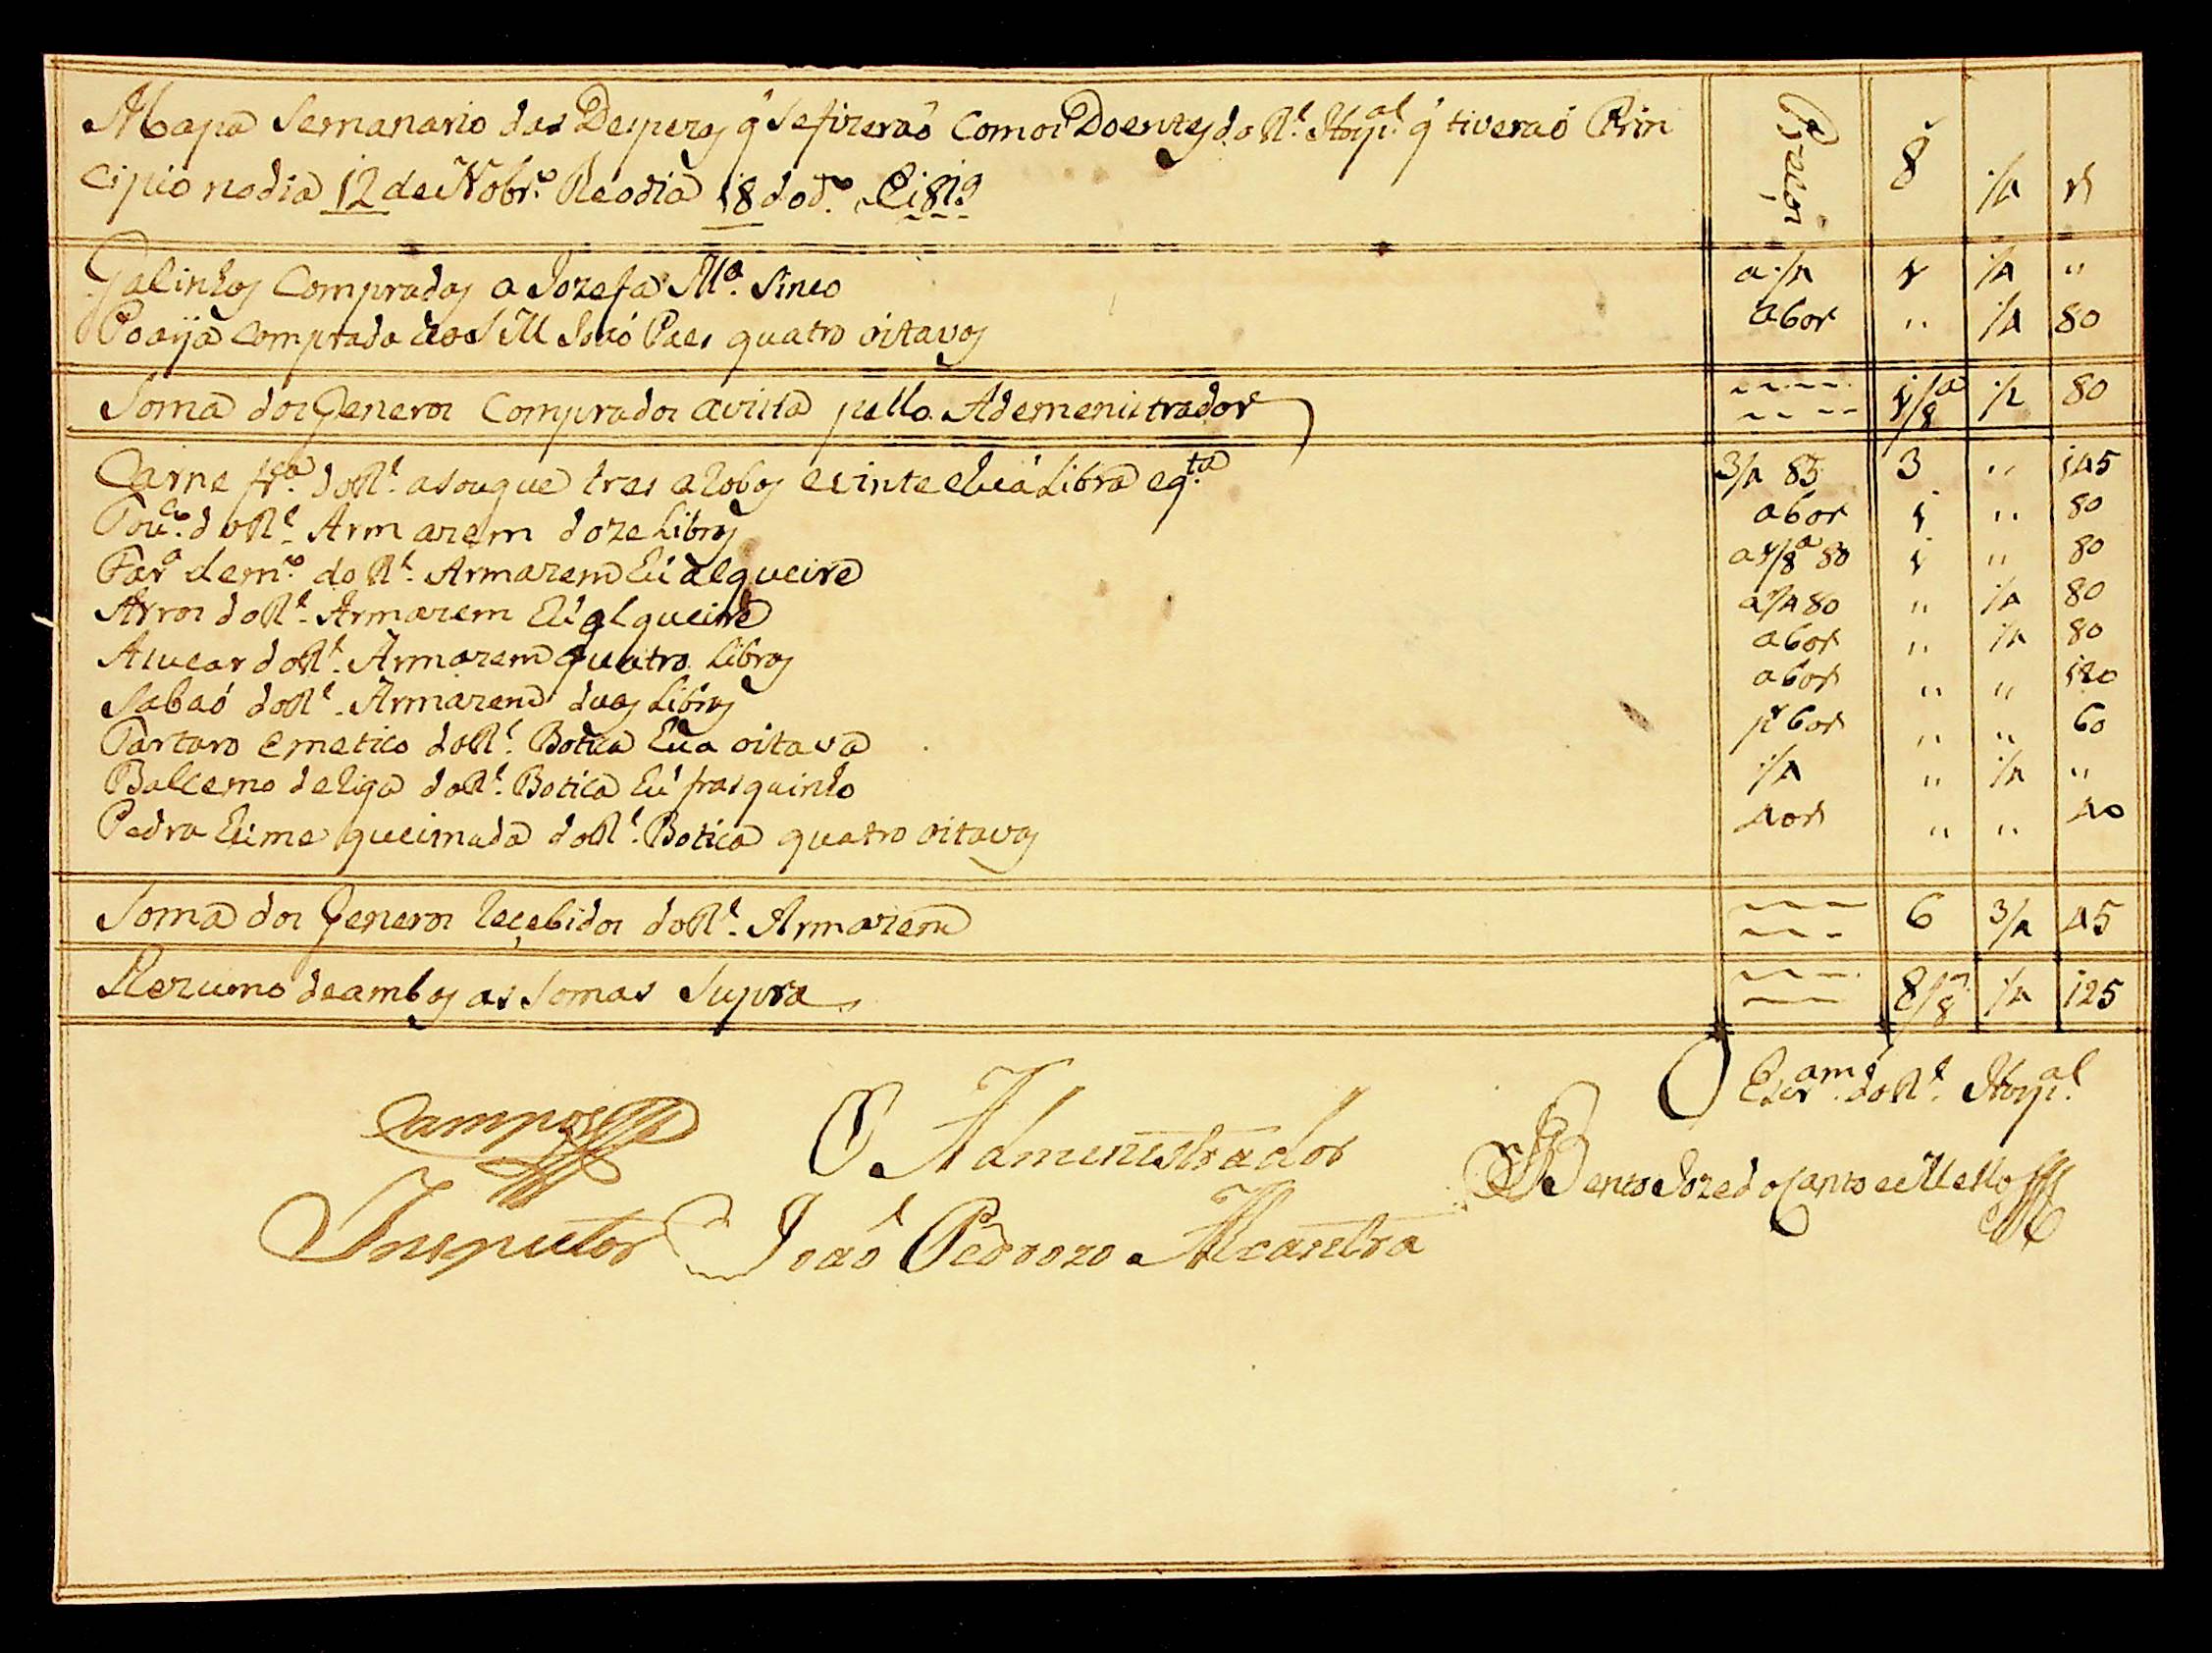 Mapa Semanario das Despezas q̃ Sefizeraõ Comos Doentes do Rl. Hospal. q̃ tiveraõ Prin
cipio nodia 12 de Nobro. Rê odia 18 dodo. E1819 Precos 8ª 1/4 rs
Galinhas Compradas a Jozefa Ma. Sinco a 1/4 1 1/4 "
Poaÿa comprada ao S M Joaõ Paes quatro oitavas a 60r " 1/4 80
Soma dos Generos Comprados avista pello Ademenistrador 1/8a 1/2 80
Carne fra. do Rl. asougue tres arobas evinte ehuã Libra eqta. 3/4 85 3 " 145
Touco. do Rl. Armazem doze Libras a 60r 1 " 80
Fara demo. do Rl. Armazem hũ alqueire a 1/8a 80 1 " 80
Arros do Rl. Armazem hũ alqueire a 1/4 80 " 1/4 80
Asucar do Rl. Armazem quatro Libras a 60r " 1/4 80
Sabaõ do Rl. Armazem duas Libras a 60r " " 120
Tartaro emetico do Rl. Botica hũa oitava pr 60r " " 60
Balcemo deliga do Rl. Botica hũ frasquinho 1/4 " 1/4 "
Pedra hume queimada do Rl. Botica quatro oitavas 40r " " 40
Soma dos Generos recebidos do Rl. Armazem 6 3/4 45
Rezumo deambas as Somas Supra 8/8as 1/4 125
O Escram. do Rl. Hospal.
Campos O Admenistrador
Bento Joze do Canto e Mello
Inspector Joaõ Pedrozo Alcantra